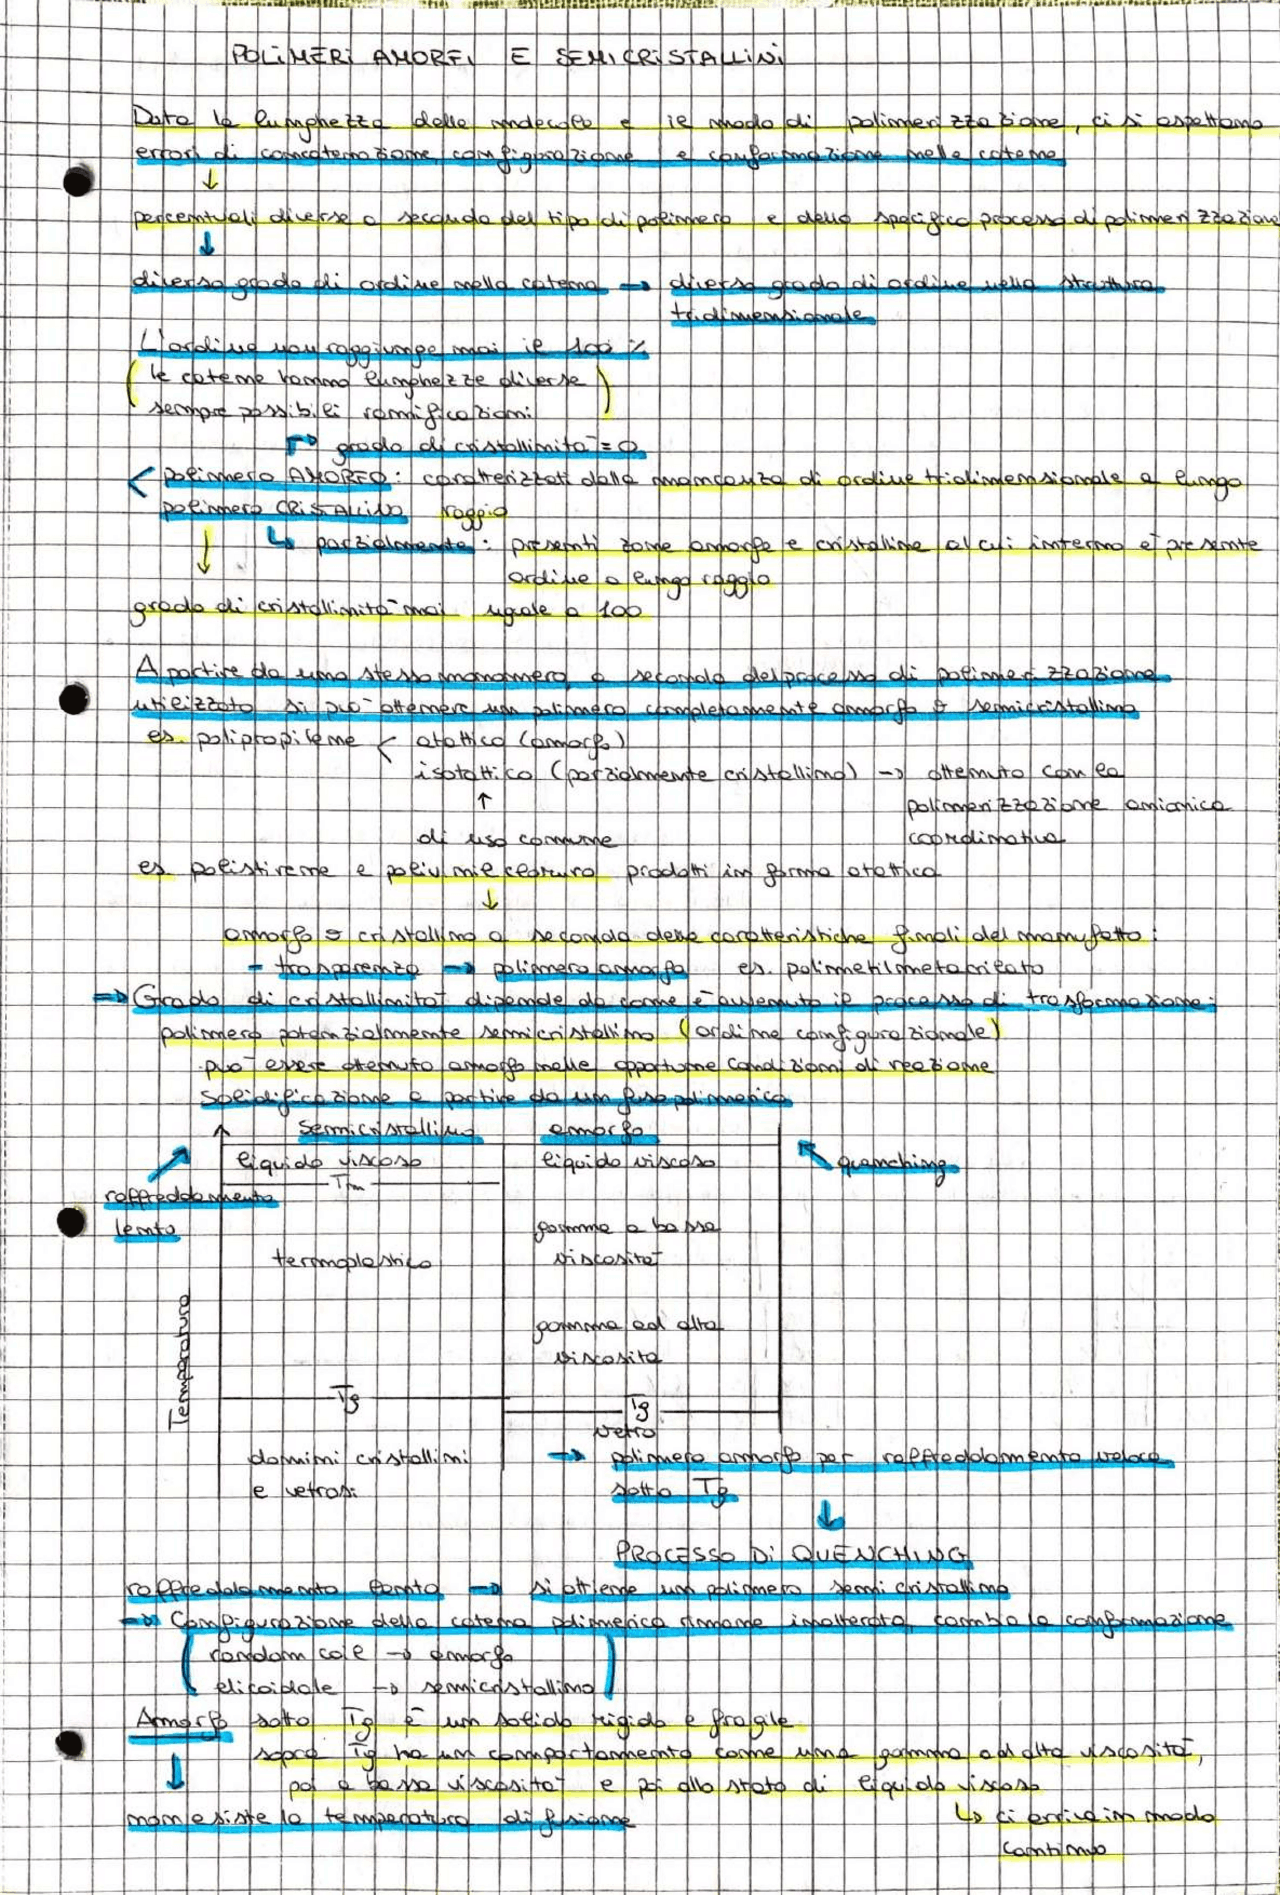 POLIMERI AMORFI E SEMICRISTALLINI
Data la lunghezza delle molecole e il modo di polimerizzazione, ci si aspettano
errori di concatenazione, configurazione e conformazione nelle catene
↓
percentuali diverse a seconda del tipo di polimero e dello specifico processo di polimerizzazione
↓
diverso grado di ordine nella catena → diverso grado di ordine nella struttura
tridimensionale
L'ordine non raggiunge mai il 100 %
(le catene hanno lunghezze diverse
sempre possibili ramificazioni)
↱ grado di cristallinità = 0
< polimero AMORFO: caratterizzati dalla mancanza di ordine tridimensionale a lungo
polimero CRISTALLINO raggio
↓ ↳ parzialmente: presenti zone amorfe e cristalline al cui interno è presente
ordine a lungo raggio
grado di cristallinità mai uguale a 100
A partire da uno stesso monomero, a seconda del processo di polimerizzazione
utilizzato si può ottenere un polimero completamente amorfo o semicristallino
es. polipropilene < atattico (amorfo)
isotattico (parzialmente cristallino) → ottenuto con la
↑ polimerizzazione anionica
di uso comune coordinativa
es. polistirene e polivinilcloruro prodotti in forma atattica
↓
amorfo o cristallino a seconda delle caratteristiche finali del manufatto:
- trasparenza → polimero amorfo es. polimetilmetacrilato
⇒ Grado di cristallinità dipende da come è avvenuto il processo di trasformazione:
polimero potenzialmente semicristallino (ordine configurazionale)
può essere ottenuto amorfo nelle opportune condizioni di reazione
solidificazione a partire da un fuso polimerico
semicristallino amorfo
liquido viscoso liquido viscoso quenching
Tm
raffreddamento
lento gomma a bassa
termoplastico viscosità
Temperatura
gomma ad alta
viscosità
Tg Tg
vetro
domini cristallini → polimero amorfo per raffreddamento veloce
e vetrosi sotto Tg
↓
PROCESSO DI QUENCHING
raffreddamento lento → si ottiene un polimero semicristallino
⇒ Configurazione della catena polimerica rimane inalterata, cambia la conformazione
(random coil → amorfo
elicoidale → semicristallino)
Amorfo sotto Tg è un solido rigido e fragile
↓ sopra Tg ha un comportamento come una gomma ad alta viscosità,
poi a bassa viscosità e poi allo stato di liquido viscoso
non esiste la temperatura di fusione ↳ ci arriva in modo
continuo